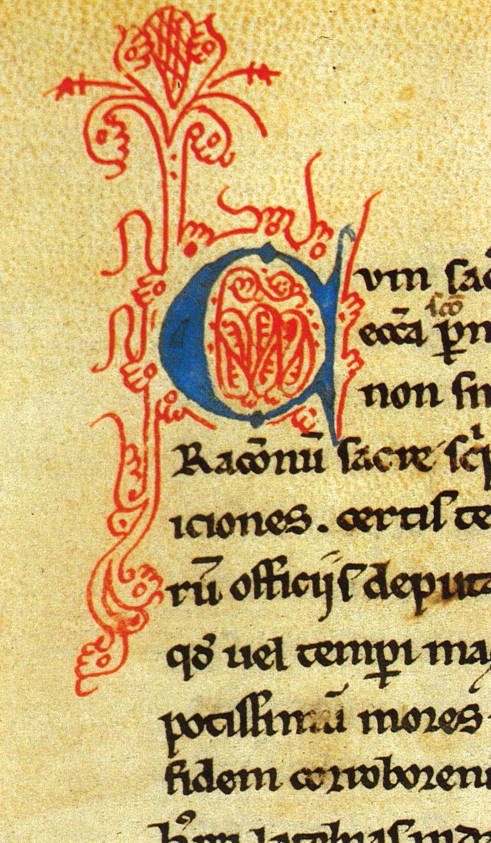 Cvm sac
scō
ecc̄a ꝑm
non sn
Racōnū sacre sc̍p
iciones. certis te
rū officijs deputa
qđ uel temꝑi ma
potissimū mores
fidem corroboren